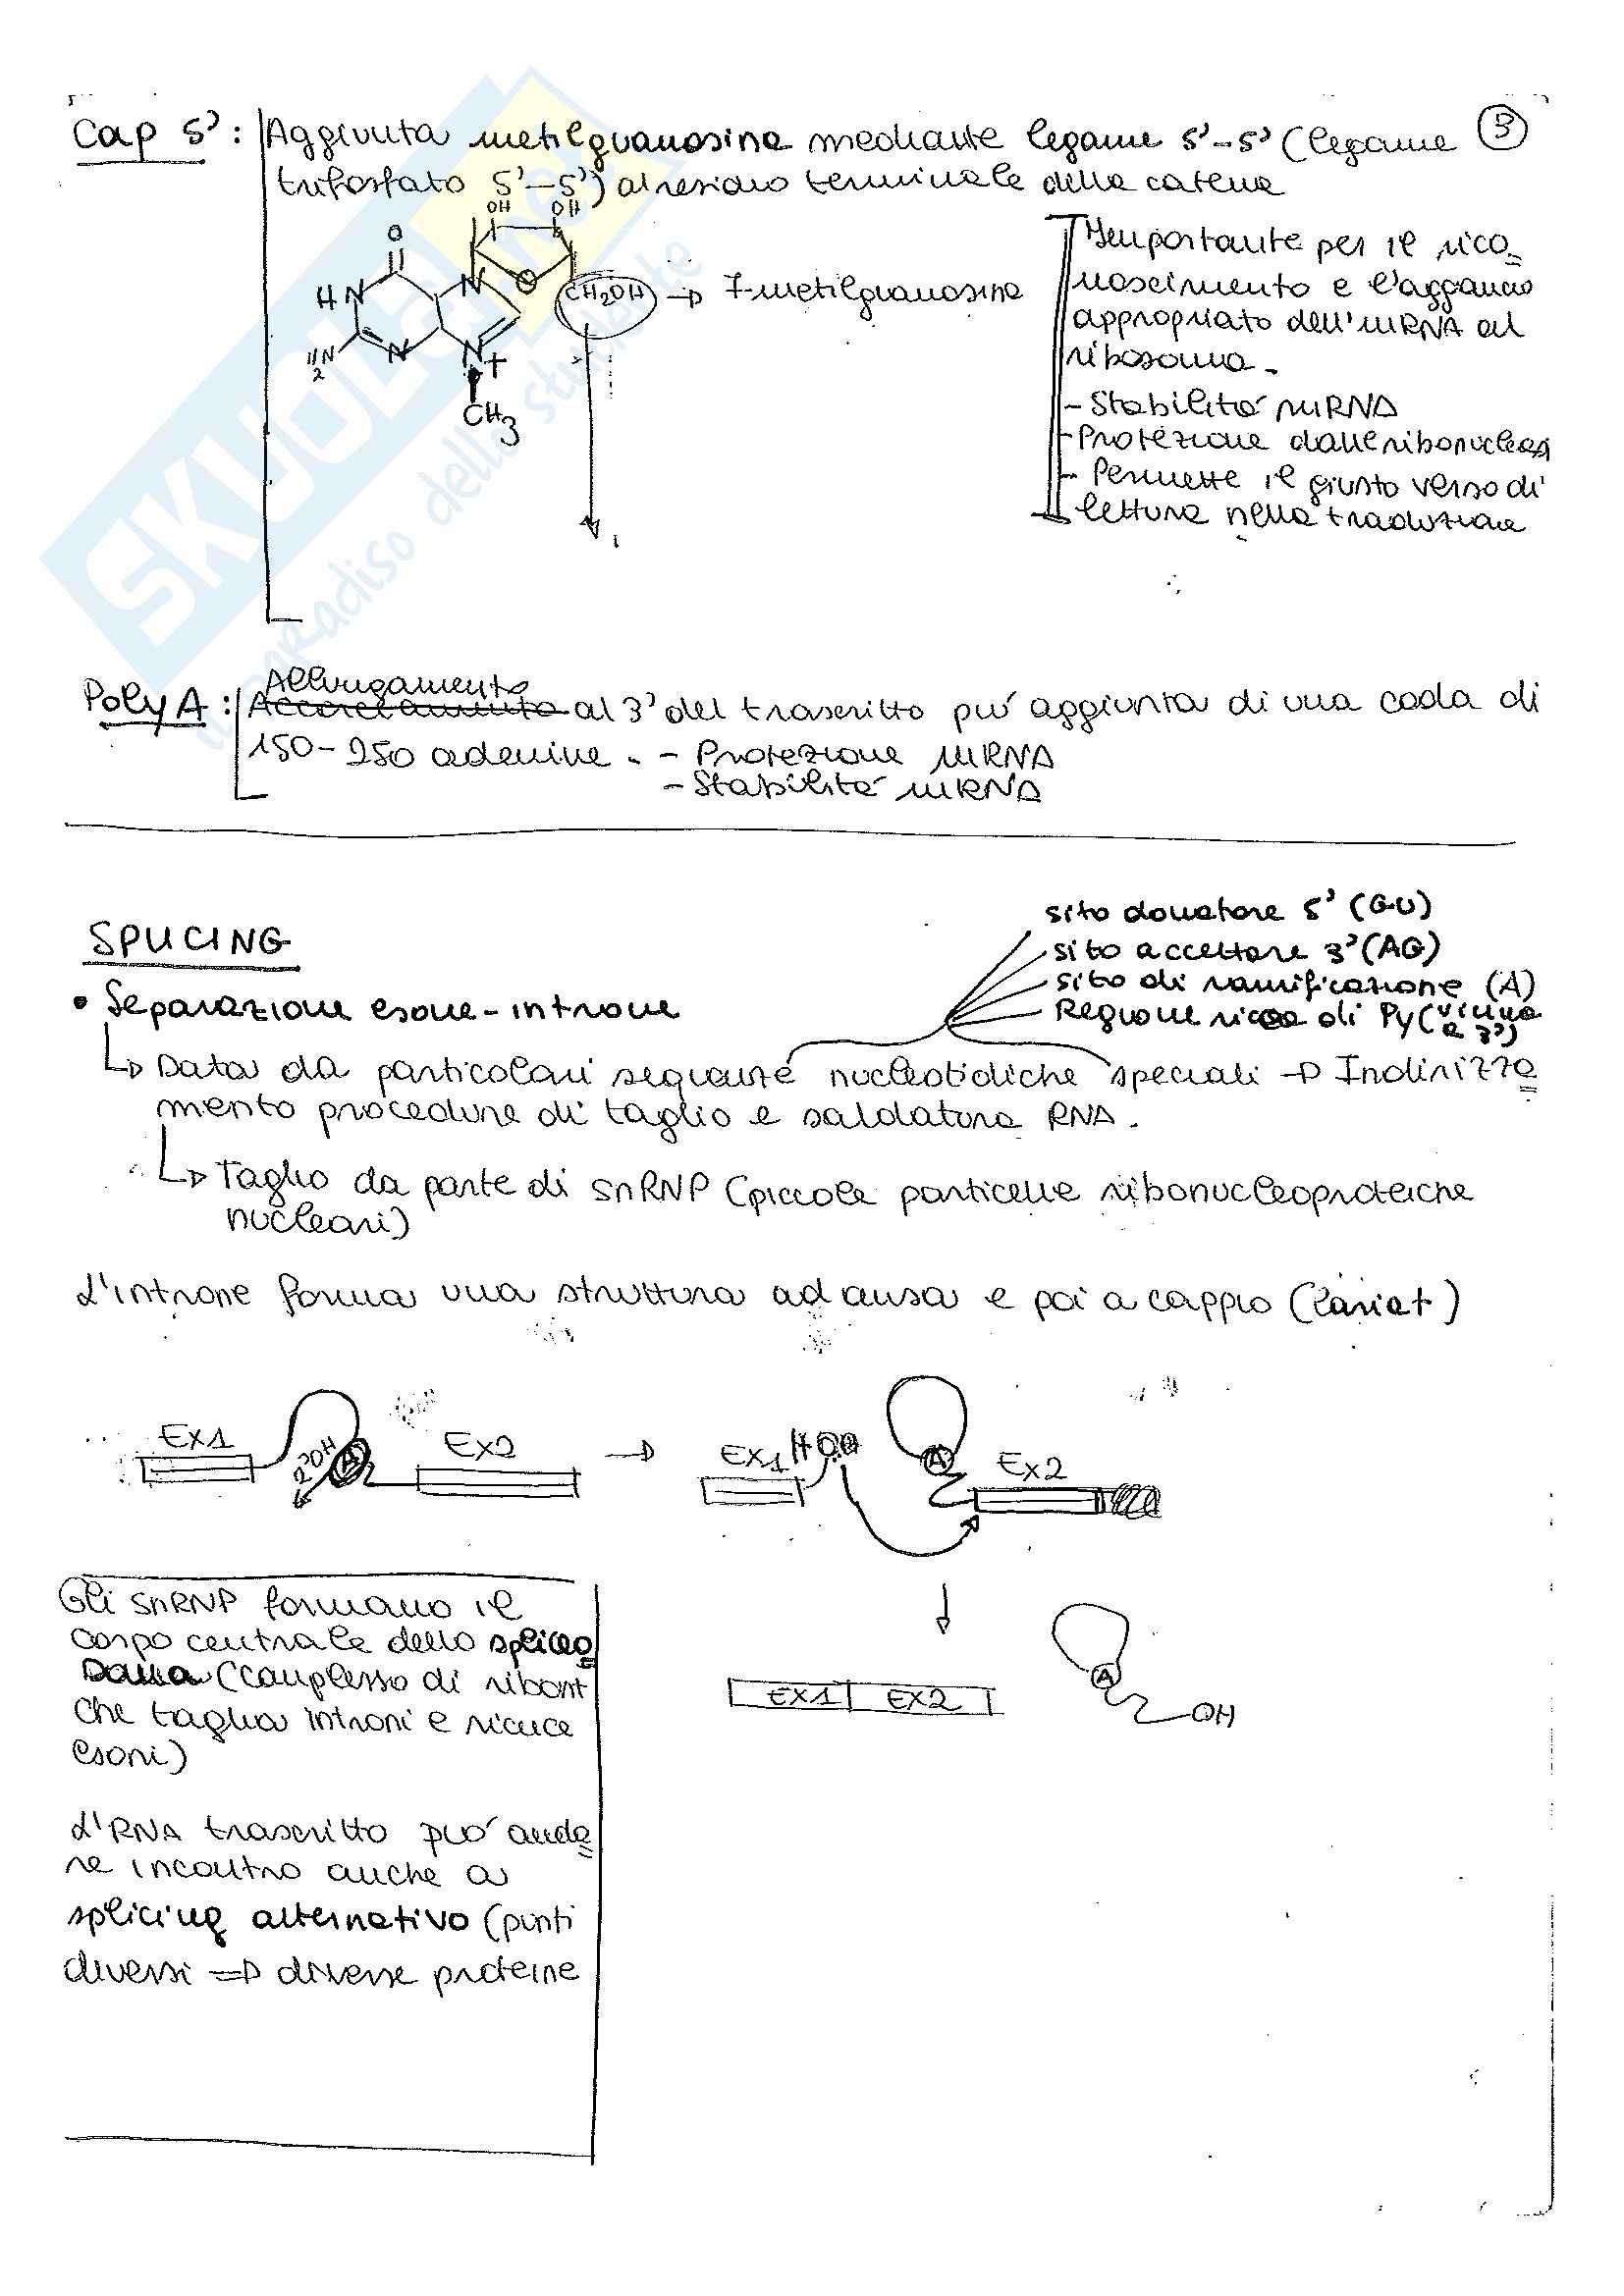 Cap 5': Aggiunta metilguanosina mediante legame 5'-5' (legame
3
trifosfato 5'-5') al residuo terminale della catena
OH OH
O
HN
N
O
CH2OH → 7-metilguanosina
H2N
N
N+
CH3
Importante per il rico
noscimento e l'aggancio
appropriato dell'mRNA al
ribosoma.
- Stabilità mRNA
- Protezione dalle ribonucleasi
- Permette il giusto verso di
lettura nella traduzione
SKUOLA.net
il paradiso dello studente
Allungamento
Poly A: Accorciamento al 3' del trascritto più aggiunta di una coda di
150-250 adenine. - Protezione mRNA
- Stabilità mRNA
SPLICING
sito donatore 5' (GU)
sito accettore 3' (AG)
sito di ramificazione (A)
Regione ricca di Py (vicina
a 3')
• Separazione esone-introne
Data da particolari sequenze nucleotidiche speciali → Indirizza
mento procedure di taglio e saldatura RNA.
Taglio da parte di snRNP (piccole particelle ribonucleoproteiche
nucleari)
L'introne forma una struttura ad ansa e poi a cappio (lariat)
Ex1 2'OH A Ex2 → Ex1 HO A Ex2
Gli snRNP formano il
corpo centrale dello spliceo
soma (complesso di ribont
che taglia introni e ricuce
esoni)
EX1 EX2
A
OH
L'RNA trascritto può anda
re incontro anche a
splicing alternativo (punti
diversi => diverse proteine